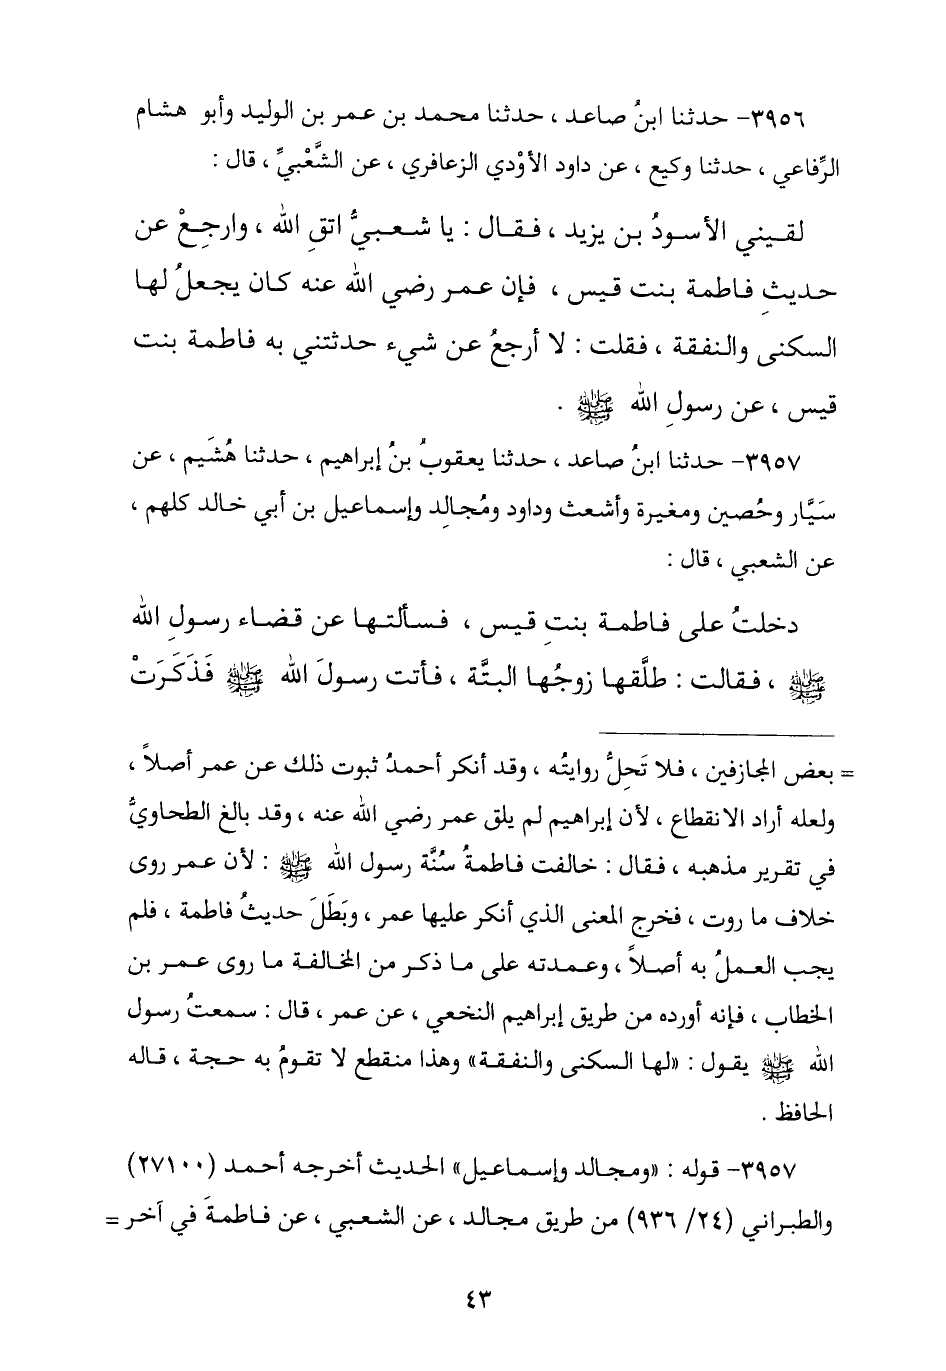 ٣٩٥٦- حدثنا ابنُ صاعد ، حدثنا محمد بن عمر بن الوليد وأبو هشام
الرِّفاعي ، حدثنا وكيع ، عن داود الأوْدي الزعافري ، عن الشَّعْبيِّ ، قال :
لقيني الأسودُ بن يزيد ، فقال : يا شعبيُّ اتقِ الله ، وارجِعْ عن
حديثِ فاطمة بنت قيس ، فإن عمر رضي الله عنه كان يجعلُ لها
السكنى والنفقة ، فقلت : لا أرجعُ عن شيء حدثتني به فاطمة بنت
قيس ، عن رسولِ الله ﷺ .
٣٩٥٧- حدثنا ابنُ صاعد ، حدثنا يعقوبُ بنُ إبراهيم ، حدثنا هُشَيم ، عن
سَيَّار وحُصين ومغيرة وأشعث وداود ومُجالِد وإسماعيل بن أبي خالد كلهم ،
عن الشعبي ، قال :
دخلتُ على فاطمة بنتِ قيس ، فسألتها عن قضاء رسولِ الله
ﷺ ، فقالت : طلَّقها زوجُها البتَّة ، فأتت رسولَ الله ﷺ فَذَكَرَتْ
= بعض المجازفين ، فلا تَحِلُّ روايتُه ، وقد أنكر أحمدُ ثبوت ذلك عن عمر أصلاً ،
ولعله أراد الانقطاع ، لأن إبراهيم لم يلق عمر رضي الله عنه ، وقد بالغ الطحاويُّ
في تقرير مذهبه ، فقال : خالفت فاطمةُ سُنَّة رسول الله ﷺ : لأن عمر روى
خلاف ما روت ، فخرج المعنى الذي أنكر عليها عمر ، وبَطَلَ حديثُ فاطمة ، فلم
يجب العملُ به أصلاً ، وعمدته على ما ذكر من المخالفة ما روى عمر بن
الخطاب ، فإنه أورده من طريق إبراهيم النخعي ، عن عمر ، قال : سمعتُ رسول
الله ﷺ يقول : «لها السكنى والنفقة» وهذا منقطع لا تقومُ به حجة ، قاله
الحافظ .
٣٩٥٧- قوله : «ومجالد وإسماعيل» الحديث أخرجه أحمد (٢٧١٠٠)
والطبراني (٢٤/ ٩٣٦) من طريق مجالد ، عن الشعبي ، عن فاطمةَ في آخر =
٤٣